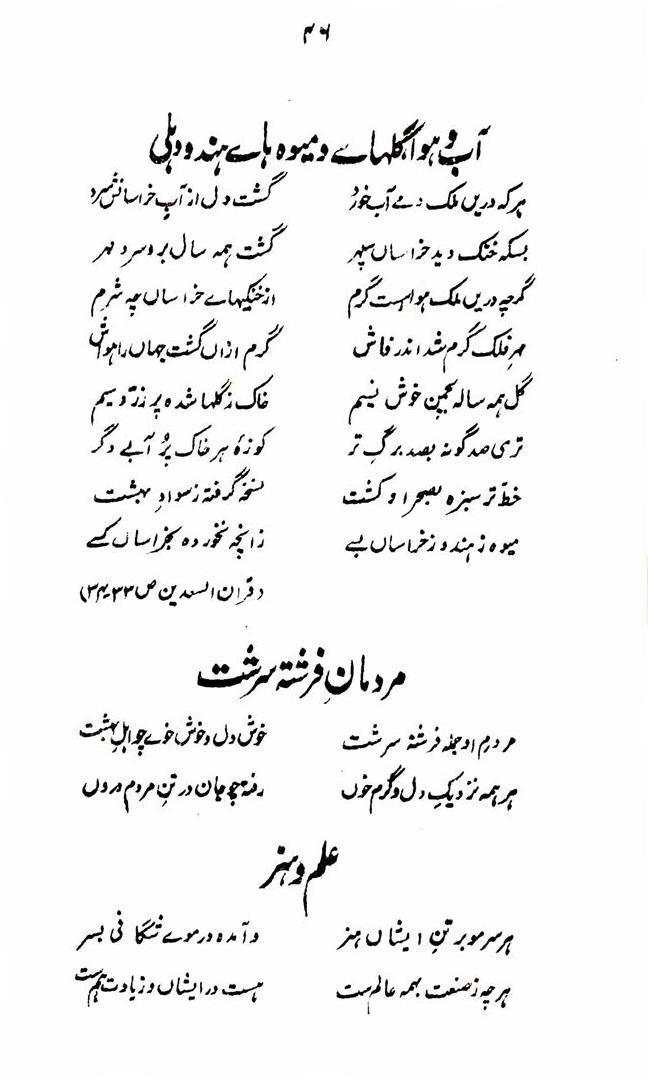 ۴۶
آب و ہوا، گلہاے و میوہ ہاے ہند و دہلی
ہر کہ دریں ملک دمے آب خورد گشت دل از آبِ خراسانش سرد
بسکہ خنک دید خراساں سپہر گشت ہمہ سال برو سرد مہر
گرچہ دریں ملک ہوا است گرم از خنکیہاے خراساں چہ شرم
مہرِ فلک گرم شد اندر فاش گرم ازاں گشت جہاں را ہواش
گل ہمہ سالہ بچمن خوش نسیم خاک ز گلہا شدہ پر زرّ و سیم
تری صد گونہ بصد برگِ تر کوزہ ہر خاک پُر آبے دگر
خطِّ تر سبزہ بصحرا و کشت نسخہ گرفتہ ز سوادِ بہشت
میوہ ز ہند و ز خراساں بسے زانچہ نخوردہ بخراساں کسے
(قران السعدین ص ۳۳، ۳۴)
مردمانِ فرشتہ سرشت
مردمِ او جملہ فرشتہ سرشت خوش دل و خوش خوے چو اہلِ بہشت
ہر ہمہ نزدیکِ دل و گرم خوں رفتہ چو جان در تنِ مردم دروں
علم و ہنر
ہر سرِ مو بر تنِ ایشاں ہنر و آمدہ در موے شگافی بسر
ہر چہ ز صنعت بہمہ عالم ست ہست در ایشاں و زیادت ہم ست